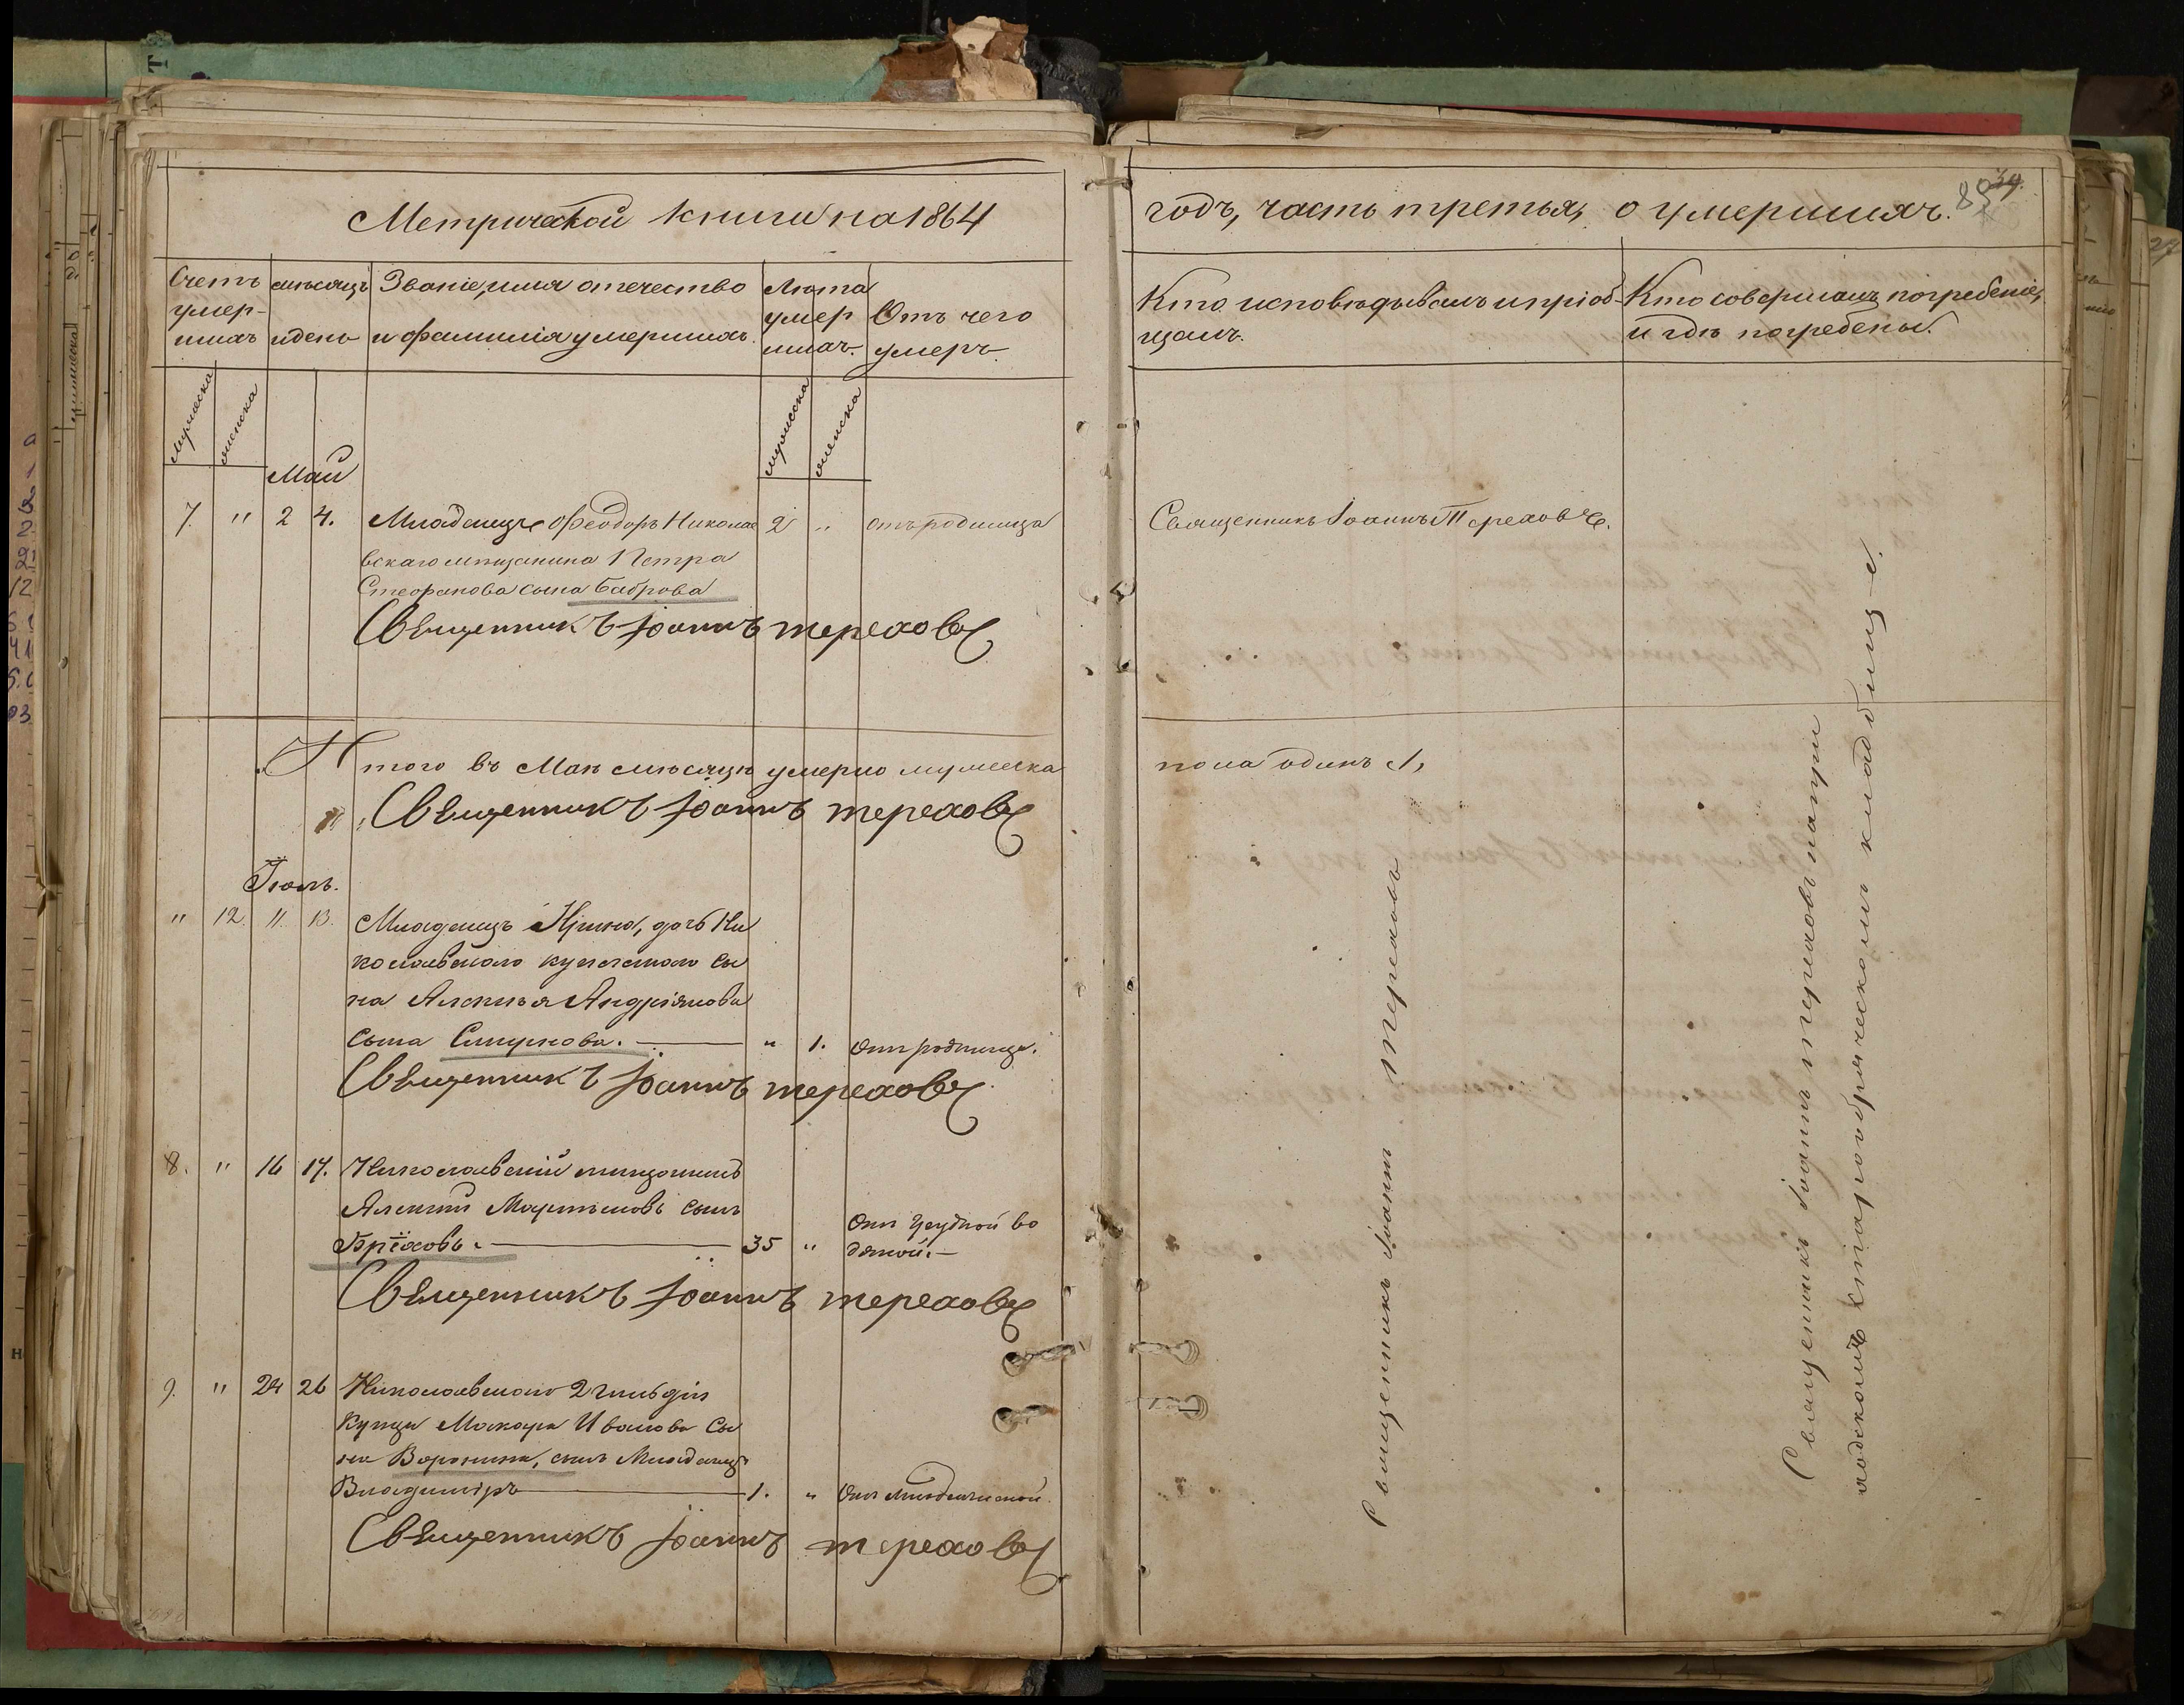 Метрической книги на 1864
Счетъ умер-шихъ
мѣсяцъ и день
Званіе, имя отечество и фамилія умершихъ.
Лѣта умер шихъ.
Отъ чего умеръ.
мужеска
женска
мужеска
женска
Май
7. " 2 4. Младенецъ Феодоръ Николае 2 " отъ родимца
вскаго мѣщанина Петра
Стефанова сына Баброва
Священникъ Іоаннъ тереховъ
Итого въ Маѣ мѣсяцѣ умерло мужеска
Священникъ Іоаннъ тереховъ
Іюль.
" 12. 11. 13. Младенецъ Ирина, дочь Ни
колаевскаго купеческаго сы
на Алексѣя Андріянова
сына Смирнова. " 1. отъ родимца.
Священникъ Іоаннъ тереховъ
8. " 16 17. Николаевскій мѣщанинъ
Алексѣй Мартыновъ сынъ
Брѣховъ. 35 " отъ грудной во
дяной.
Священникъ Іоаннъ тереховъ
9. " 24 26 Николаевскаго 2 гильдіи
купца Макара Иванова сы
на Воронина, сынъ Младенецъ
Владиміръ 1. " отъ младенческой.
Священникъ Іоаннъ тереховъ
годъ, часть третья, о умершихъ.
34.
Кто исповѣдывалъ и пріоб-
щалъ.
Кто совершалъ погребеніе,
и гдѣ погребены.
Священникъ Іоаннъ Тереховъ.
пола одинъ 1,
Священникъ Іоаннъ тереховъ
Священникъ Іоаннъ тереховъ на при
ходскомъ старообрядческомъ кладбищѣ.